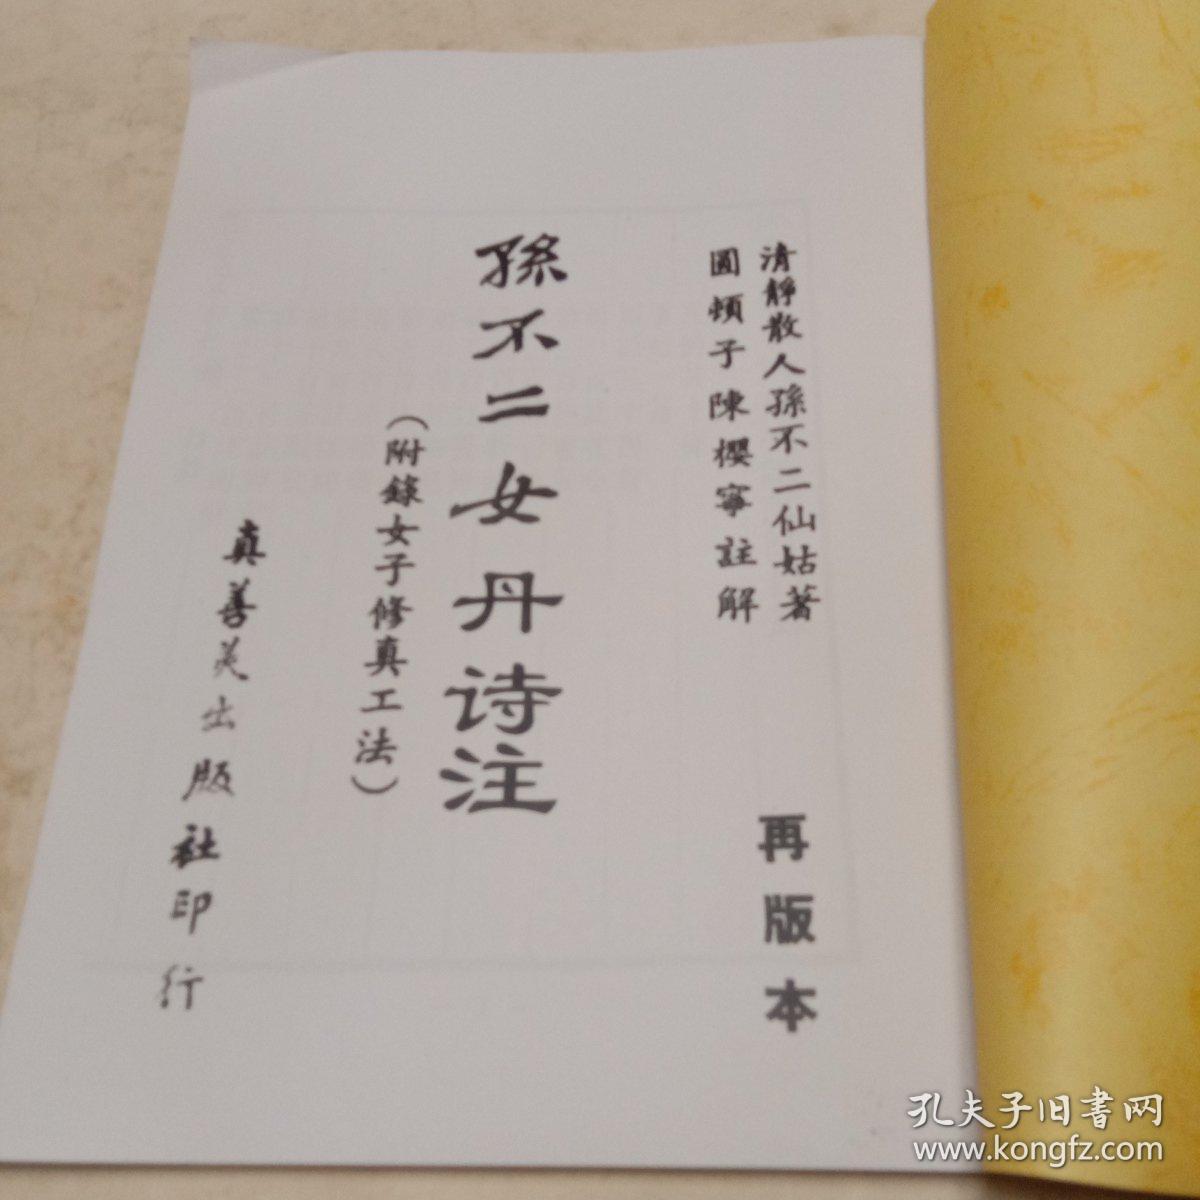 清靜散人孫不二仙姑著
圓頓子陳櫻寧註解
再版本
孫不二女丹诗注
（附錄女子修真工法）
真善美出版社印行
孔夫子旧书网
www.kongfz.com